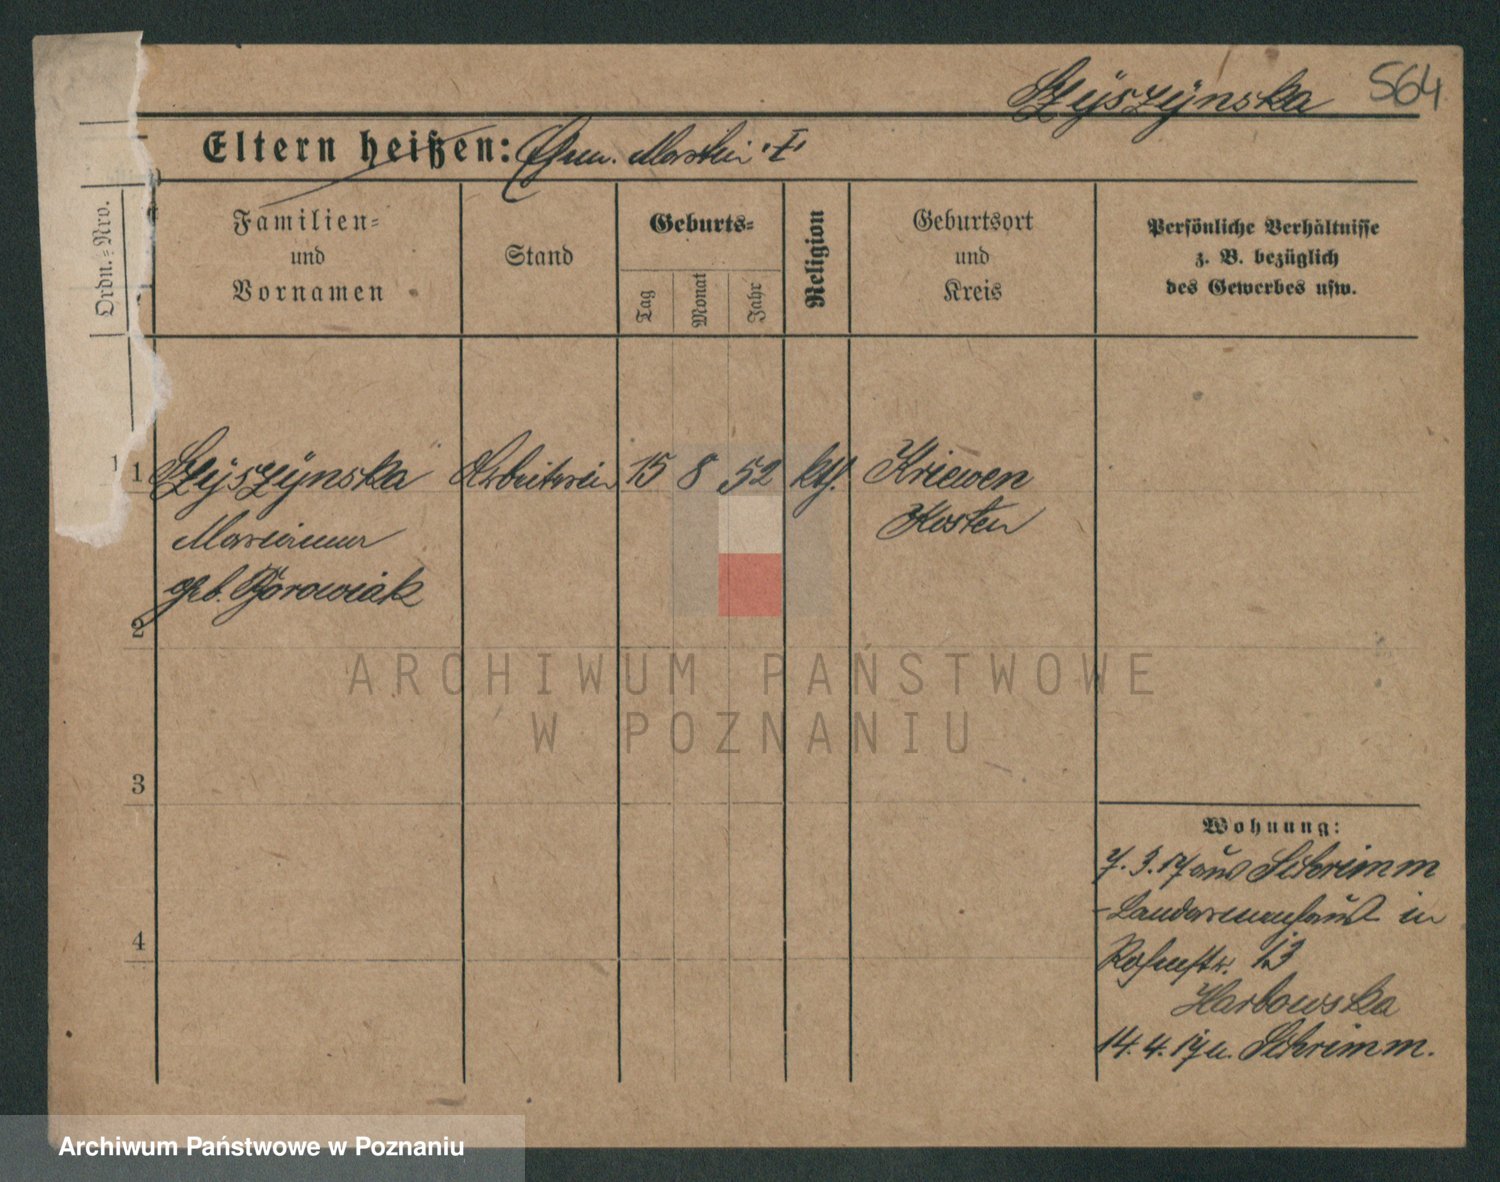 Szyszynska 564
Eltern heißen: Ehem. Martin "†"
Ordn.=Nro.
Familien=
und
Vornamen
Stand
Geburts=
Tag
Monat
Jahr
Religion
Geburtsort
und
Kreis
Persönliche Verhältnisse
z. B. bezüglich
des Gewerbes usw.
1 1 Szyszynska Arbeiterin 15 8 52 kth. Kriewen
Marianna Kosten
geb. Borowiak
2
3
4
Wohnung:
7. 3. 17 aus Schrimm
-Landarmenhaus in
Rosenstr. 13
Harbowska
14. 4. 17 n. Schrimm.
ARCHIWUM PAŃSTWOWE
W POZNANIU
Archiwum Państwowe w Poznaniu